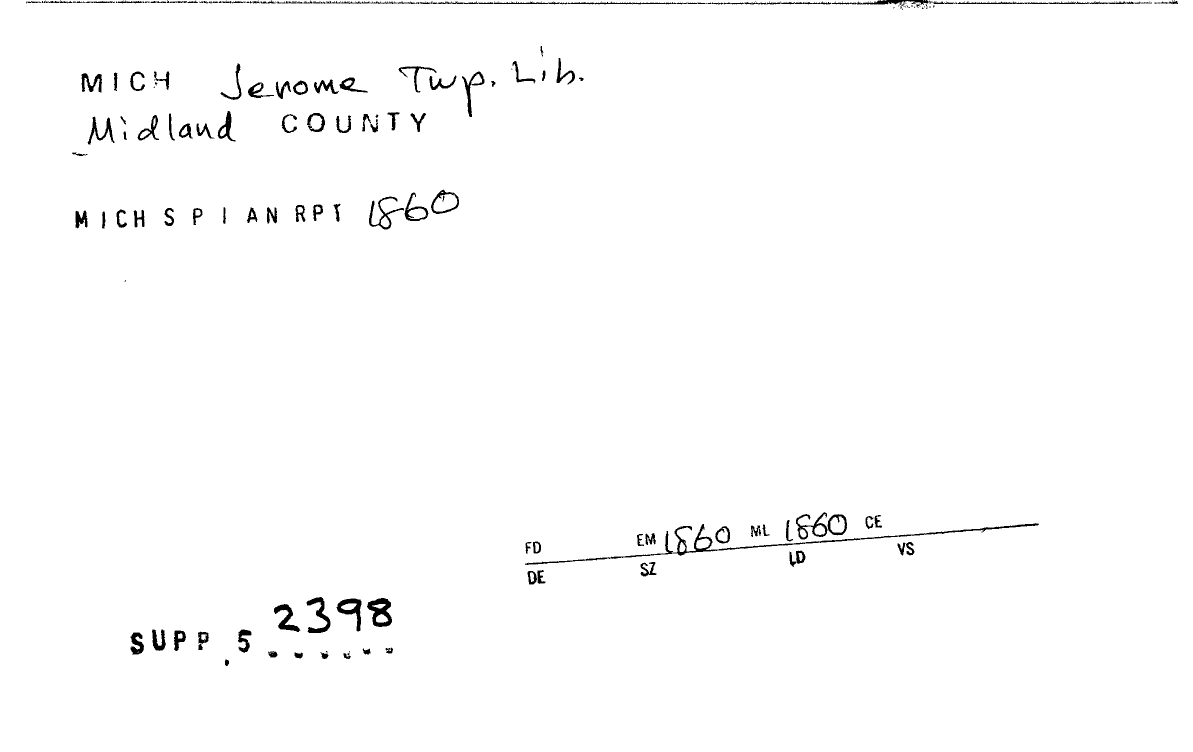 MICH Jerome Twp. Lib.
Midland COUNTY
MICH S P I AN RPT 1860
FD EM 1860 ML 1860 CE
DE SZ LD VS
SUPP. 5 2398